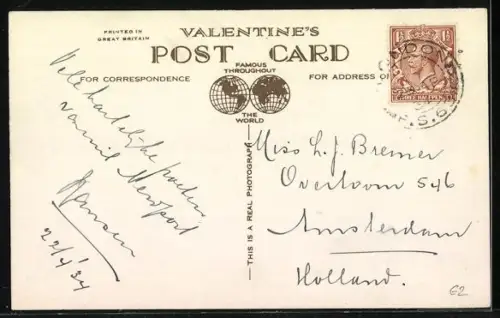 PRINTED IN
GREAT BRITAIN
VALENTINE'S
POST CARD
FOR CORRESPONDENCE
FAMOUS
THROUGHOUT
THE
WORLD
FOR ADDRESS ON
THIS IS A REAL PHOTOGRAPH
Vele hartelijke groeten
vanuit Newport
Hansen
22/4 '34
Miss L. J. Bremer
Overtoom 546
Amsterdam
Holland.
LONDON
F.S.6
62